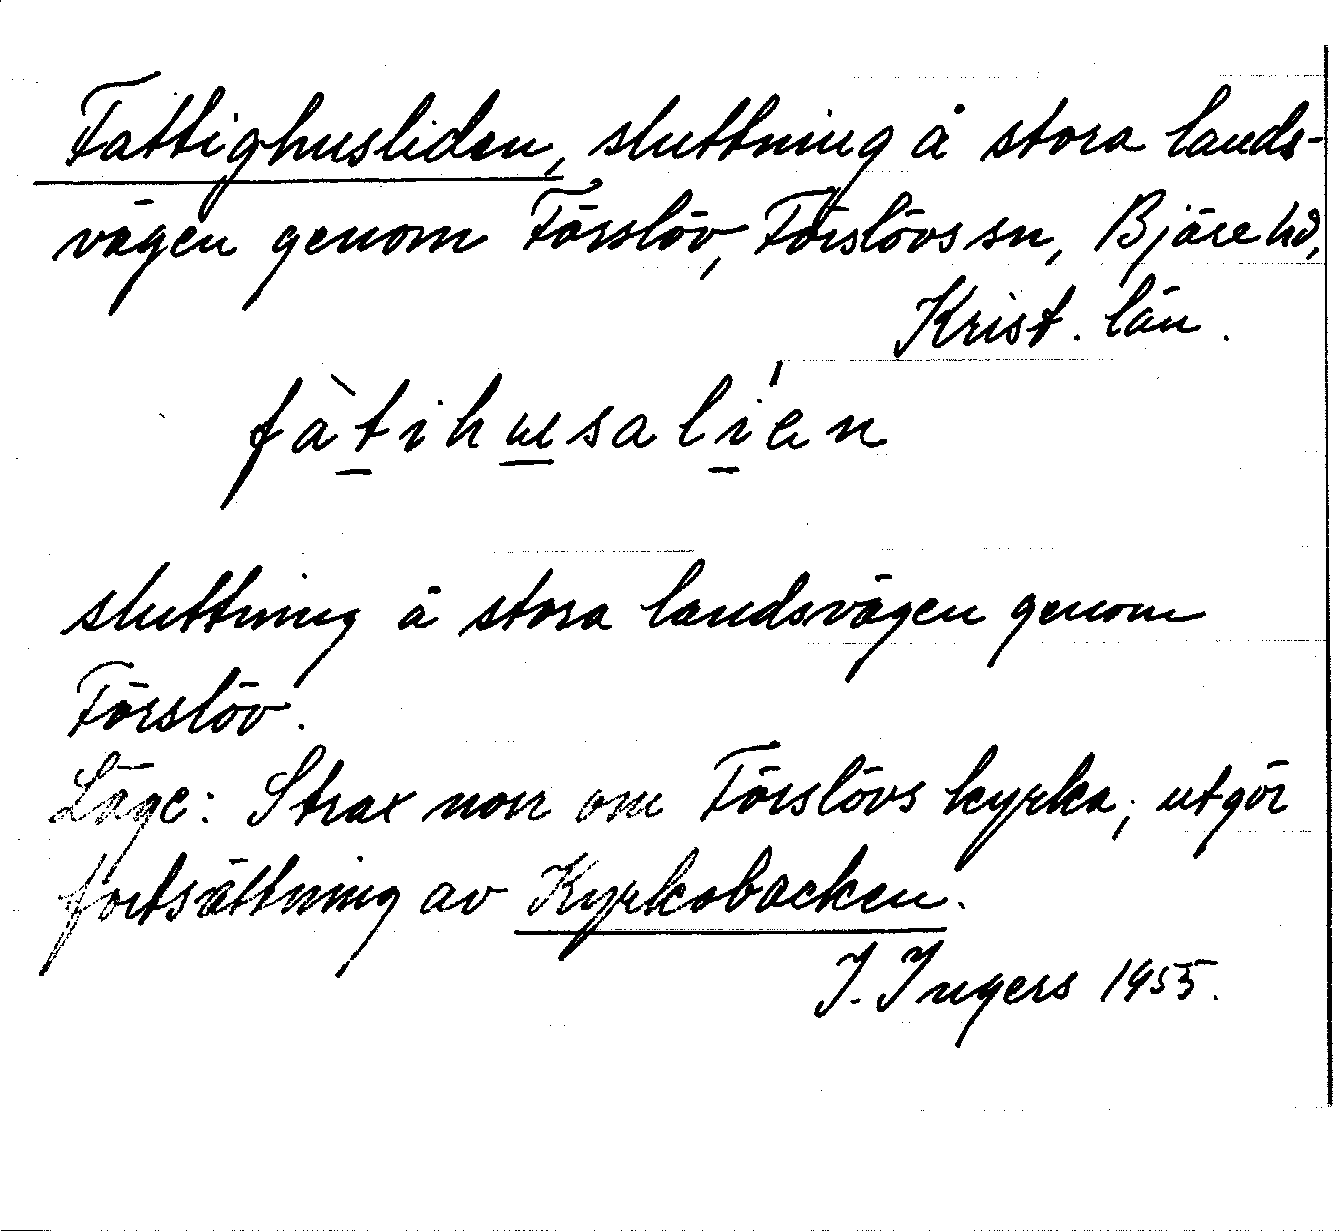 Fattighusliden, sluttning å stora lands-
vägen genom Förslöv, Förslövs sn, Bjäre hd,
Krist. län.
fàtihusalíen
sluttning å stora landsvägen genom
Förslöv.
Läge: Strax norr om Förslövs kyrka; utgör
fortsättning av Kyrkobacken.
I. Ingers 1955.